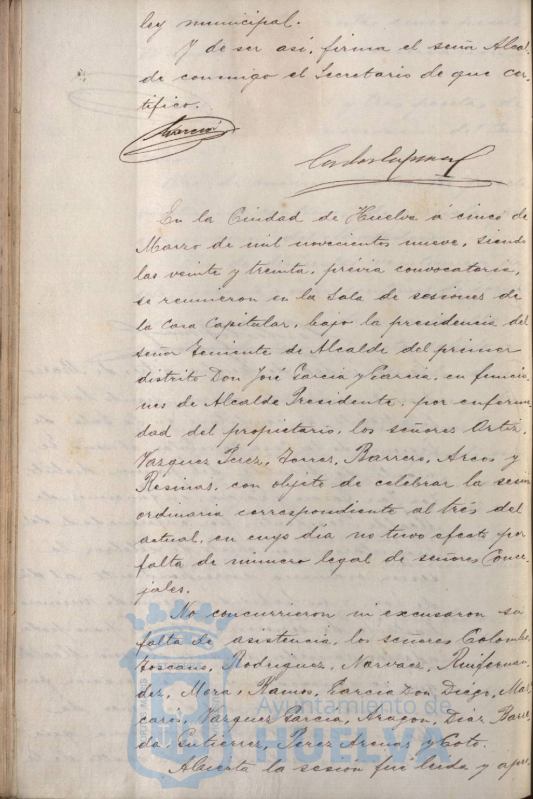 ley municipal.
Y de ser así, firma el señor Alcal-
de conmigo el Secretario de que cer-
tifico.
En la Ciudad de Huelva á cinco de
Marzo de mil novecientos nueve, siendo
las veinte y treinta, prévia convocatoria,
se reunieron en la Sala de sesiones de
la Casa Capitular, bajo la presidencia del
señor Teniente de Alcalde del primer
distrito Don José Garcia y Garcia, en funcio-
nes de Alcalde Presidente, por enferme-
dad del propietario, los señores Ortiz,
Vazquez Perez, Torres, Barrero, Arcos y
Resinas, con objeto de celebrar la sesion
ordinaria correspondiente al trés del
actual, en cuyo dia no tuvo efecto por
falta de número legal de señores Conce-
jales.
No concurrieron ni excusaron su
falta de asistencia, los señores Colombo,
Toscano, Rodriguez, Narvaez, Ruifernan-
dez, Mora, Ramos, Garcia Don Diego, Ma-
carro, Vazquez Garcia, Aragon, Diaz, Barre-
da, Gutierrez, Perez Arenas y Coto.
Ayuntamiento de
HUELVA
Abierta la sesión fué leida y apro-